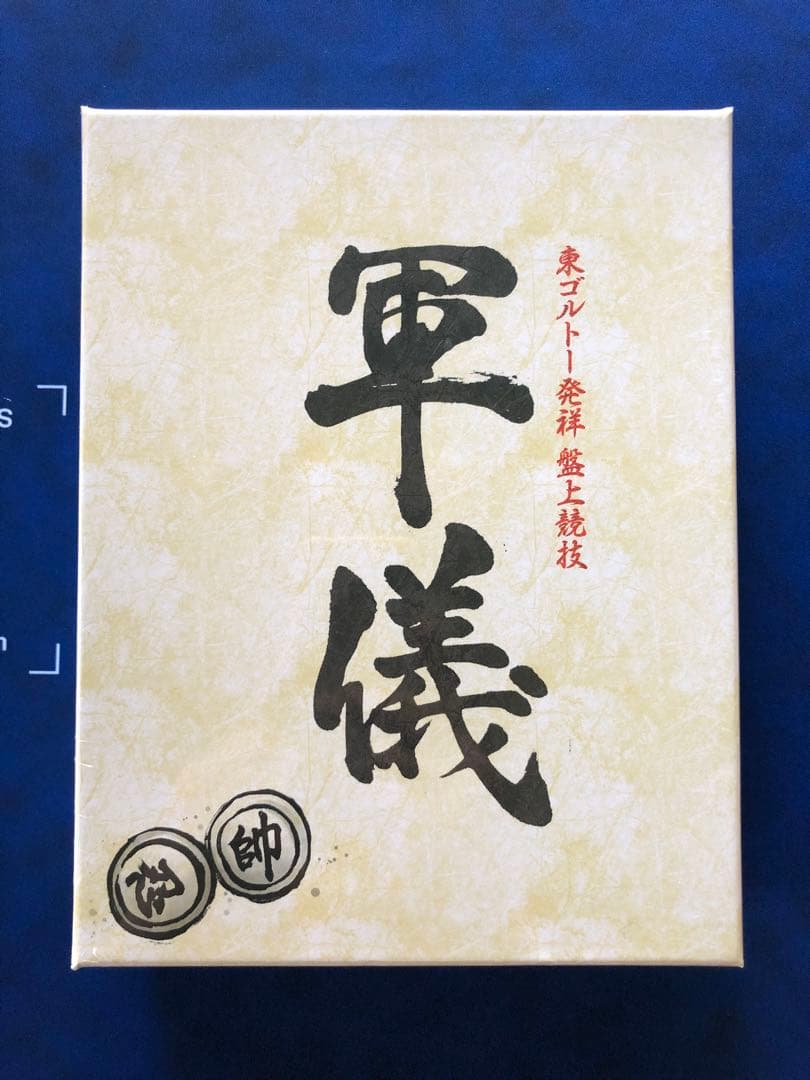 東ゴルトー発祥 盤上競技
軍儀
帥
忍
s